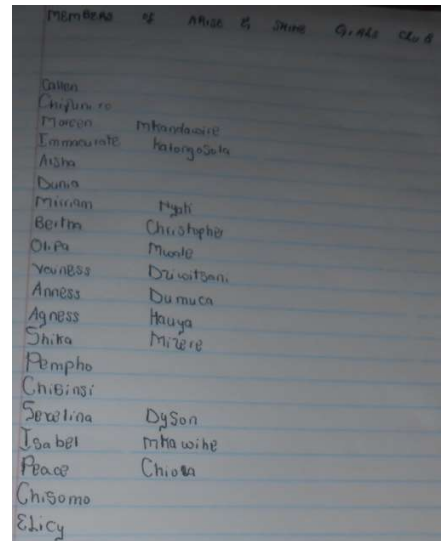 MEMBERS of ARISE & SHINE GIRLS CLUB
Callen
Chifuniro
Moreen Mkandawire
Immaculate
Aisha
Dunia
Mirriam
Bertha Christopher
Olipa Mwale
Youness
Anness Dumuca
Agness Hauya
Shika Mizere
Pempho
Chisinsi
Serelina Dyson
Isabel Mkawihe
Peace
Chisomo
Elicy